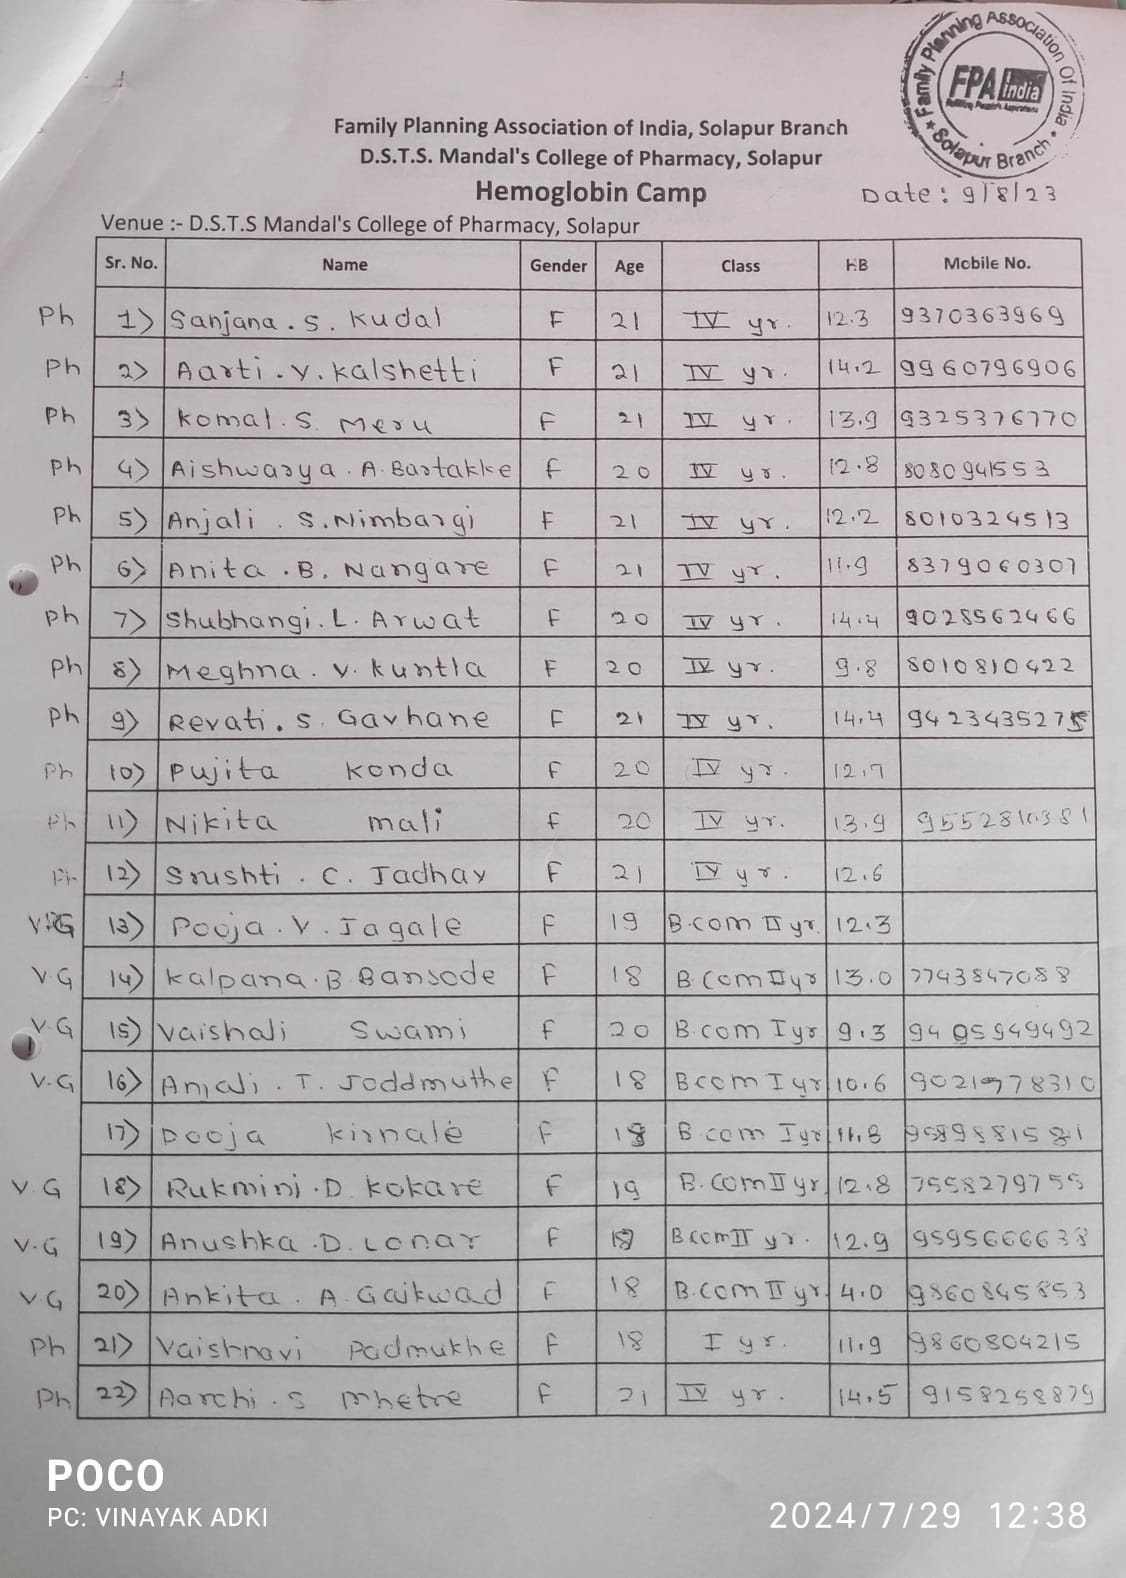 Family Planning Association Of India
FPA India
Solapur Branch
Family Planning Association of India, Solapur Branch
D.S.T.S. Mandal's College of Pharmacy, Solapur
Hemoglobin Camp
Date: 9/8/23
Venue :- D.S.T.S Mandal's College of Pharmacy, Solapur
Sr. No. Name Gender Age Class HB Mobile No.
Ph 1) Sanjana . S. Kudal F 21 IV yr. 12.3 9370363969
Ph 2) Aarti . V. Kalshetti F 21 IV yr. 14.2 9960796906
Ph 3) Komal . S. Meru F 21 IV yr. 13.9 9325376770
Ph 4) Aishwarya . A. Bartakke F 20 IV yr. 12.8 8080941553
Ph 5) Anjali . S. Nimbargi F 21 IV yr. 12.2 8010324513
Ph 6) Anita . B. Nangare F 21 IV yr. 11.9 8379060307
Ph 7) Shubhangi . L. Arwat F 20 IV yr. 14.4 9028562466
Ph 8) Meghna . V. Kuntla F 20 IV yr. 9.8 8010810422
Ph 9) Revati . S. Gavhane F 21 IV yr. 14.4 9423435275
Ph 10) Pujita Konda F 20 IV yr. 12.7
Ph 11) Nikita Mali F 20 IV yr. 13.9
Ph 12) Srushti . C. Jadhav F 21 IV yr. 12.6
13) Pooja . V. Jagale F 19 B.com II yr. 12.3
V G 14) Kalpana . B. Bansode F 18 B.Com II yr 13.0 7743847088
V.G 15) Vaishali Swami F 20 B.com I yr 9.3 9495949492
V.G 16) Anjali . T. Joddmuthe F 18 B com I yr 10.6
17) Pooja Kirnale F 18 B.com I yr 11.8
V.G 18) Rukmini . D. Kokare F 19 B.Com II yr. 12.8 7558279755
V.G 19) Anushka . D. Lonar F B com II yr. 12.9 9595666638
V G 20) Ankita . A. Gaikwad F 18 B.com II yr. 4.0 9860845853
Ph 21) Vaishnavi Padmukhe F 18 I yr. 11.9 9860804215
Ph 22) Aarchi . S Mhetre F 21 IV yr. 14.5 9158258879
POCO
PC: VINAYAK ADKI
2024/7/29 12:38